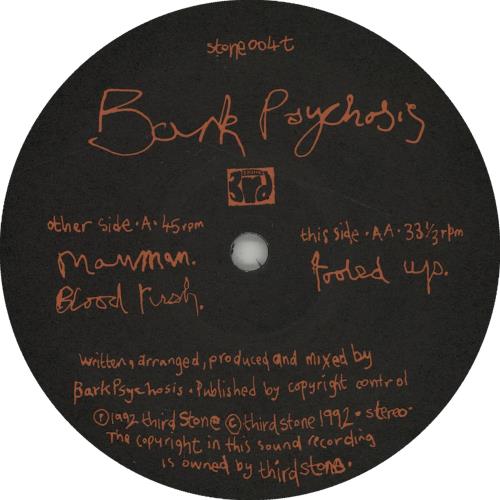 stone004t
Bark Psychosis
3rd
other side · A · 45rpm
manman.
Blood rush.
this side · AA · 33⅓rpm
tooled up.
written, arranged, produced and mixed by
Bark Psychosis · Published by copyright control
℗1992 third Stone © third stone 1992 · stereo ·
The copyright in this sound recording
is owned by third stone.